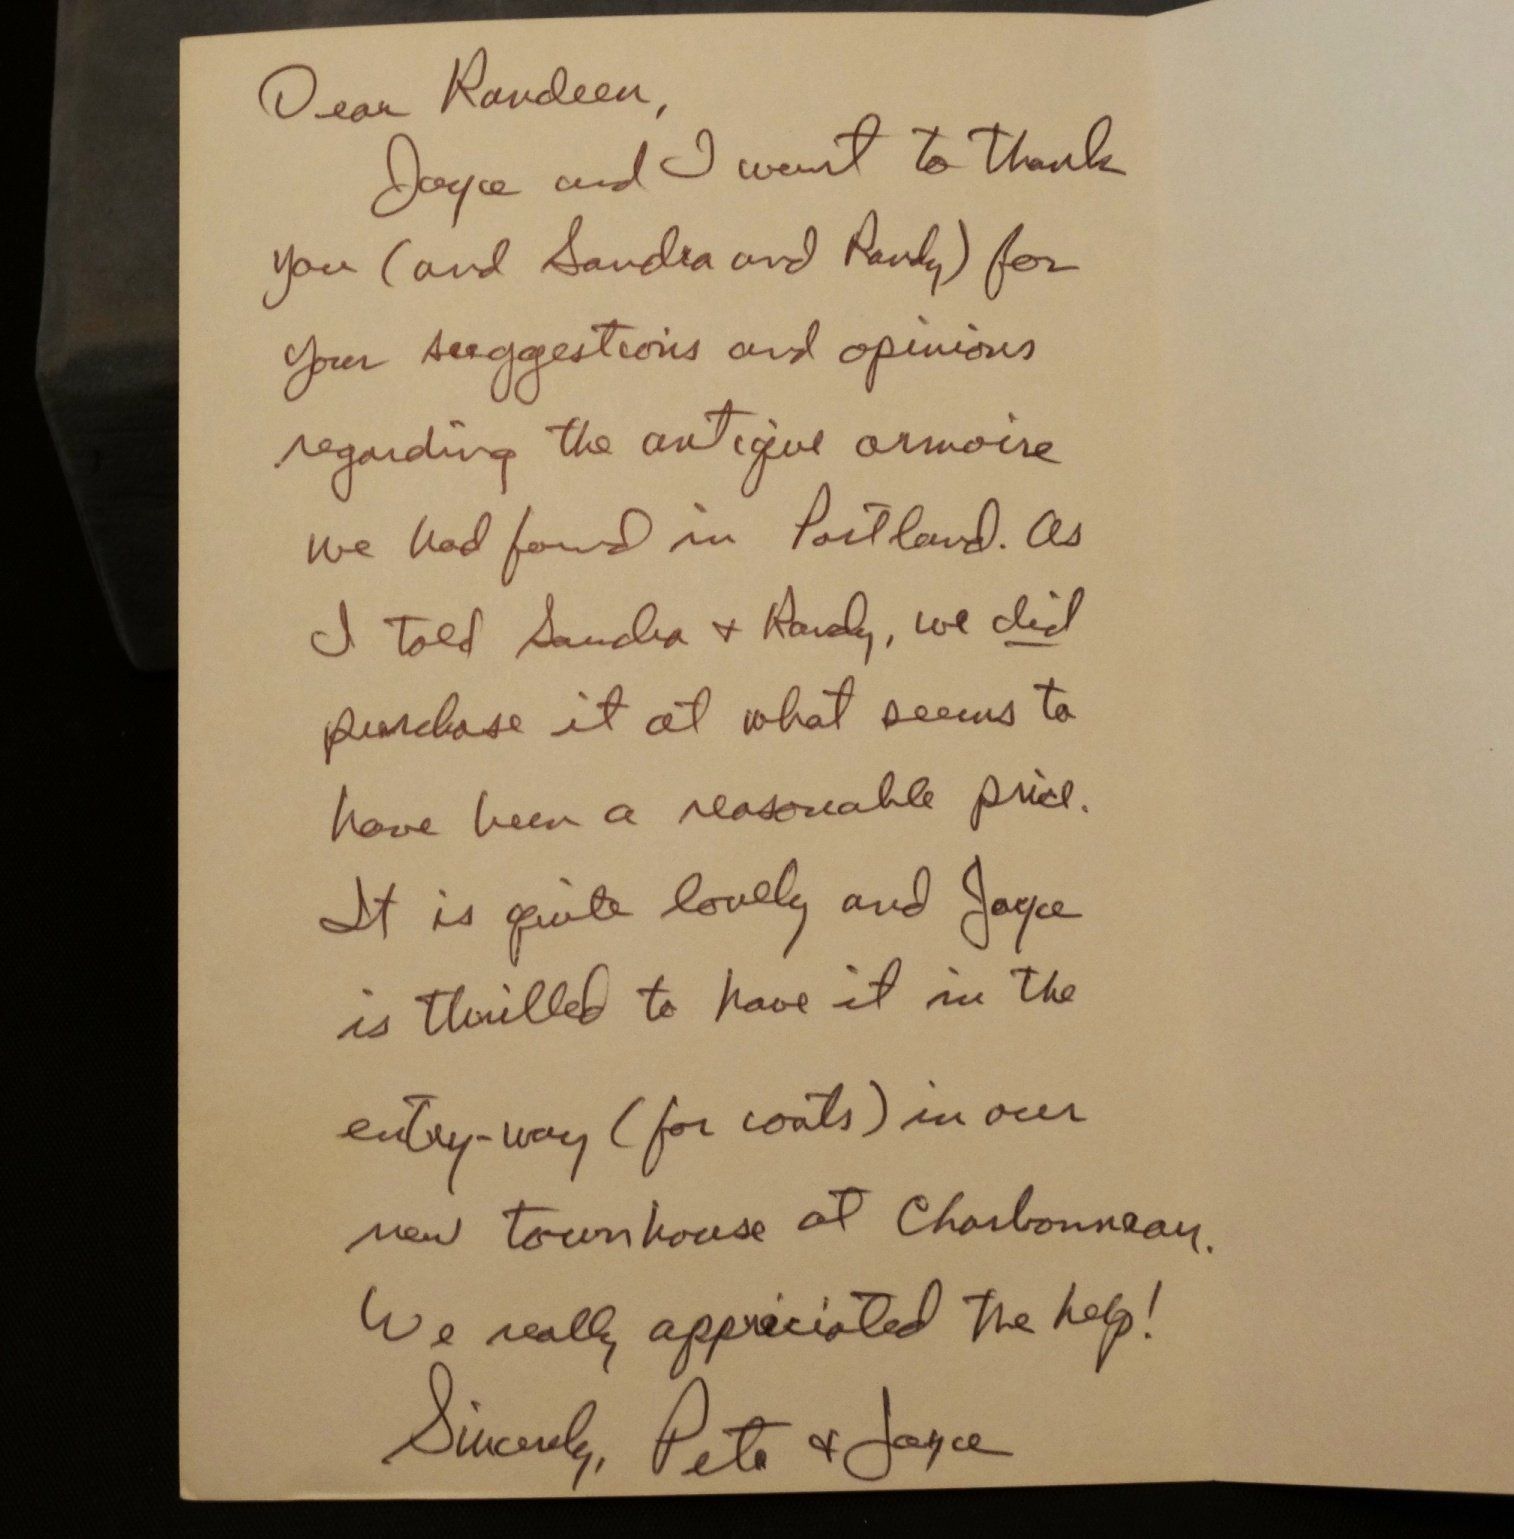 Dear Randeen,
Joyce and I want to thank
you (and Sandra and Randy) for
your suggestions and opinions
regarding the antique armoire
we had found in Portland. As
I told Sandra + Randy, we did
purchase it at what seems to
have been a reasonable price.
It is quite lovely and Joyce
is thrilled to have it in the
entry-way (for coats) in our
new townhouse at Charbonneau.
We really appreciated the help!
Sincerely, Pete & Joyce